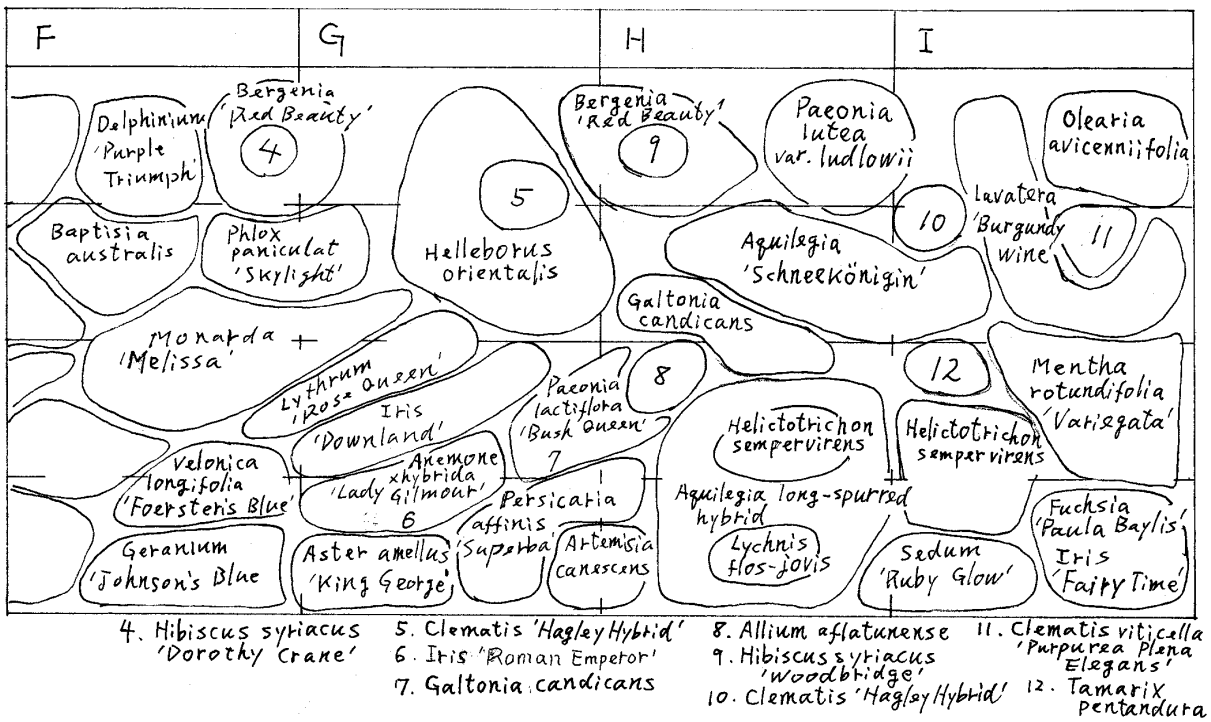 F
G
H
I
Delphinium
'Purple
Triumph'
Bergenia
'Red Beauty'
4
5
Helleborus
orientalis
Bergenia
'Red Beauty'
9
Paeonia
lutea
var. ludlowii
10
Lavatera
'Burgundy
wine'
11
Olearia
avicenniifolia
Baptisia
australis
Phlox
paniculat
'Skylight'
Aquilegia
'Schneekönigin'
Galtonia
candicans
Monarda
'Melissa'
Lythrum
'Rose Queen'
Iris
'Downland'
Paeonia
lactiflora
'Bush Queen'
7
8
12
Mentha
rotundifolia
'Variegata'
Helictotrichon
sempervirens
Helictotrichon
sempervirens
Velonica
longifolia
'Foerster's Blue'
Anemone
xhybrida
'Lady Gilmour'
6
Persicaria
affinis
'Superba'
Aquilegia long-spurred
hybrid
Lychnis
flos-jovis
Fuchsia
'Paula Baylis'
Iris
'Fairy Time'
Geranium
'Johnson's Blue
Aster amellus
'King George'
Artemisia
canescens
Sedum
'Ruby Glow'
4. Hibiscus syriacus
'Dorothy Crane'
5. Clematis 'Hagley Hybrid'
6. Iris 'Roman Emperor'
7. Galtonia candicans
8. Allium aflatunense
9. Hibiscus syriacus
'Woodbridge'
10. Clematis 'Hagley Hybrid'
11. Clematis viticella
'Purpurea Plena
Elegans'
12. Tamarix
pentandura